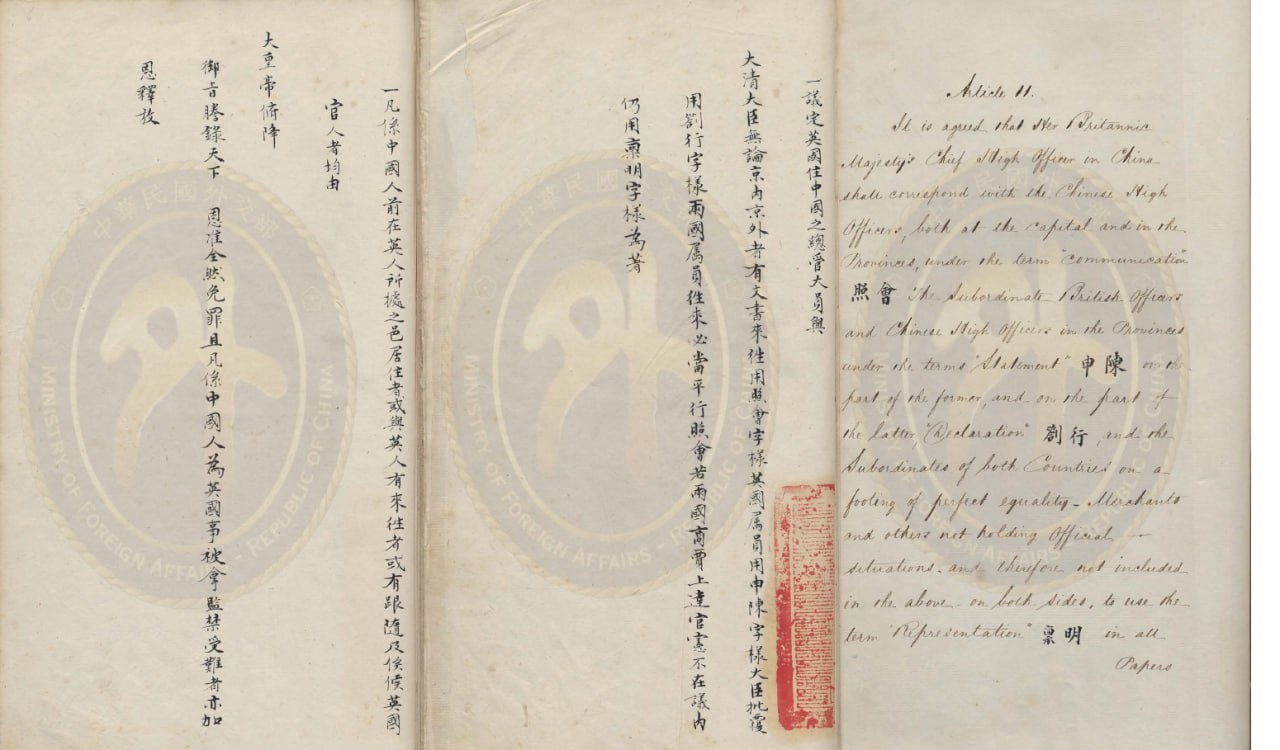 Article 11.
It is agreed that Her Britannic
Majesty's Chief High Officer in China
shall correspond with the Chinese High
Officers, both at the capital and in the
Provinces, under the term "Communication"
照會 The Subordinate British Officers
and Chinese High Officers in the Provinces
under the terms "Statement" 申陳 on the
part of the former, and on the part of
the latter, "Declaration" 劄行, and the
Subordinates of both Countries on a
footing of perfect equality - Merchants
and others not holding Official
situations and therefore not included
in the above on both sides, to use the
term "Representation" 稟明 in all
Papers
一議定英國住中國之總管大員與
大清大臣無論京內京外者有文書來往用照會字樣英國属員用申陳字樣大臣批覆
用劄行字樣兩國属員往來必當平行照會若兩國商賈上達官憲不在議內
仍用稟明字樣為著
一凡係中國人前在英人所據之邑居住者或與英人有來往者或有跟隨及俟候英國
官人者均由
大皇帝俯降
御旨謄錄天下 恩准全然免罪且凡係中國人為英國事被拿監禁受難者亦加
恩釋放
中華民國外交部
MINISTRY OF FOREIGN AFFAIRS - REPUBLIC OF CHINA
中華民國外交部
MINISTRY OF FOREIGN AFFAIRS - REPUBLIC OF CHINA